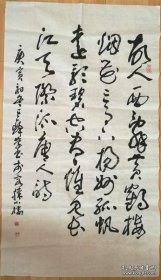 故人西辞黄鹤楼
烟花三月下扬州孤帆
远影碧空尽惟见长
江天际流唐人诗
庚寅